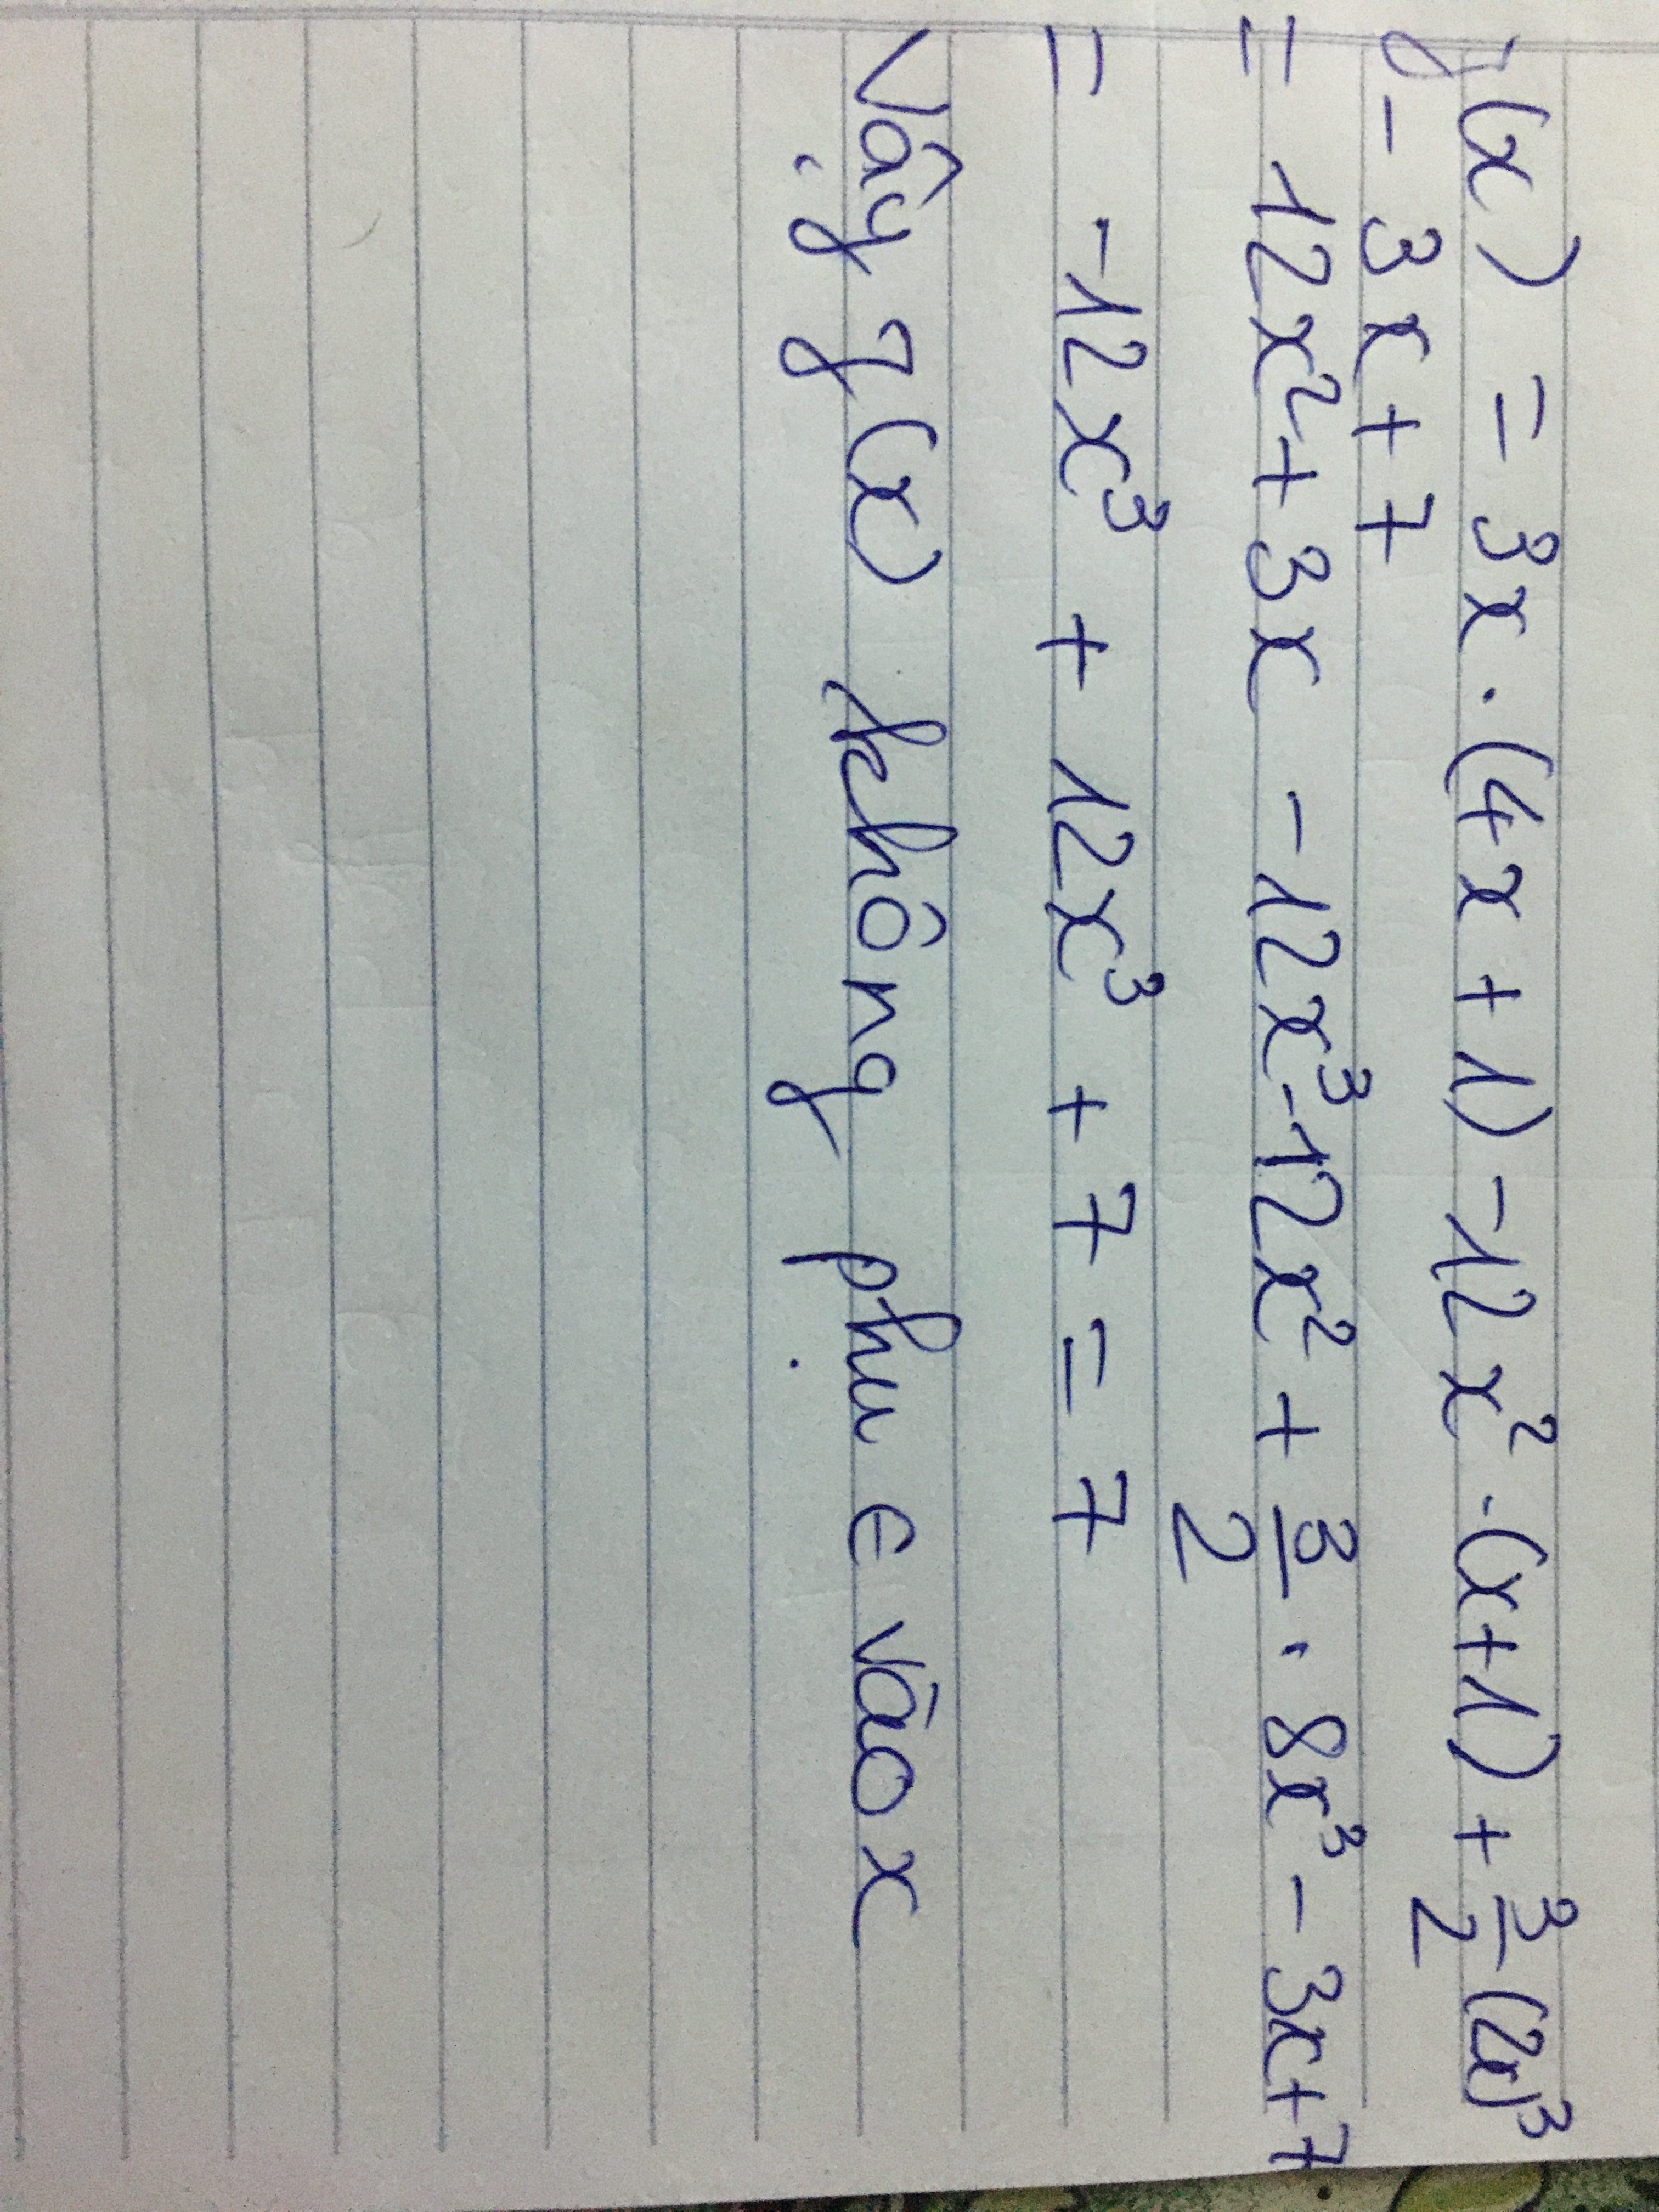 g(x) = 3x . (4x + 1) - 12x² . (x+1) + 3/2 (2x)³
- 3x + 7
= 12x² + 3x - 12x³ - 12x² + 3/2 . 8x³ - 3x + 7
= -12x³ + 12x³ + 7 = 7
Vậy g(x) không phụ ∈ vào x